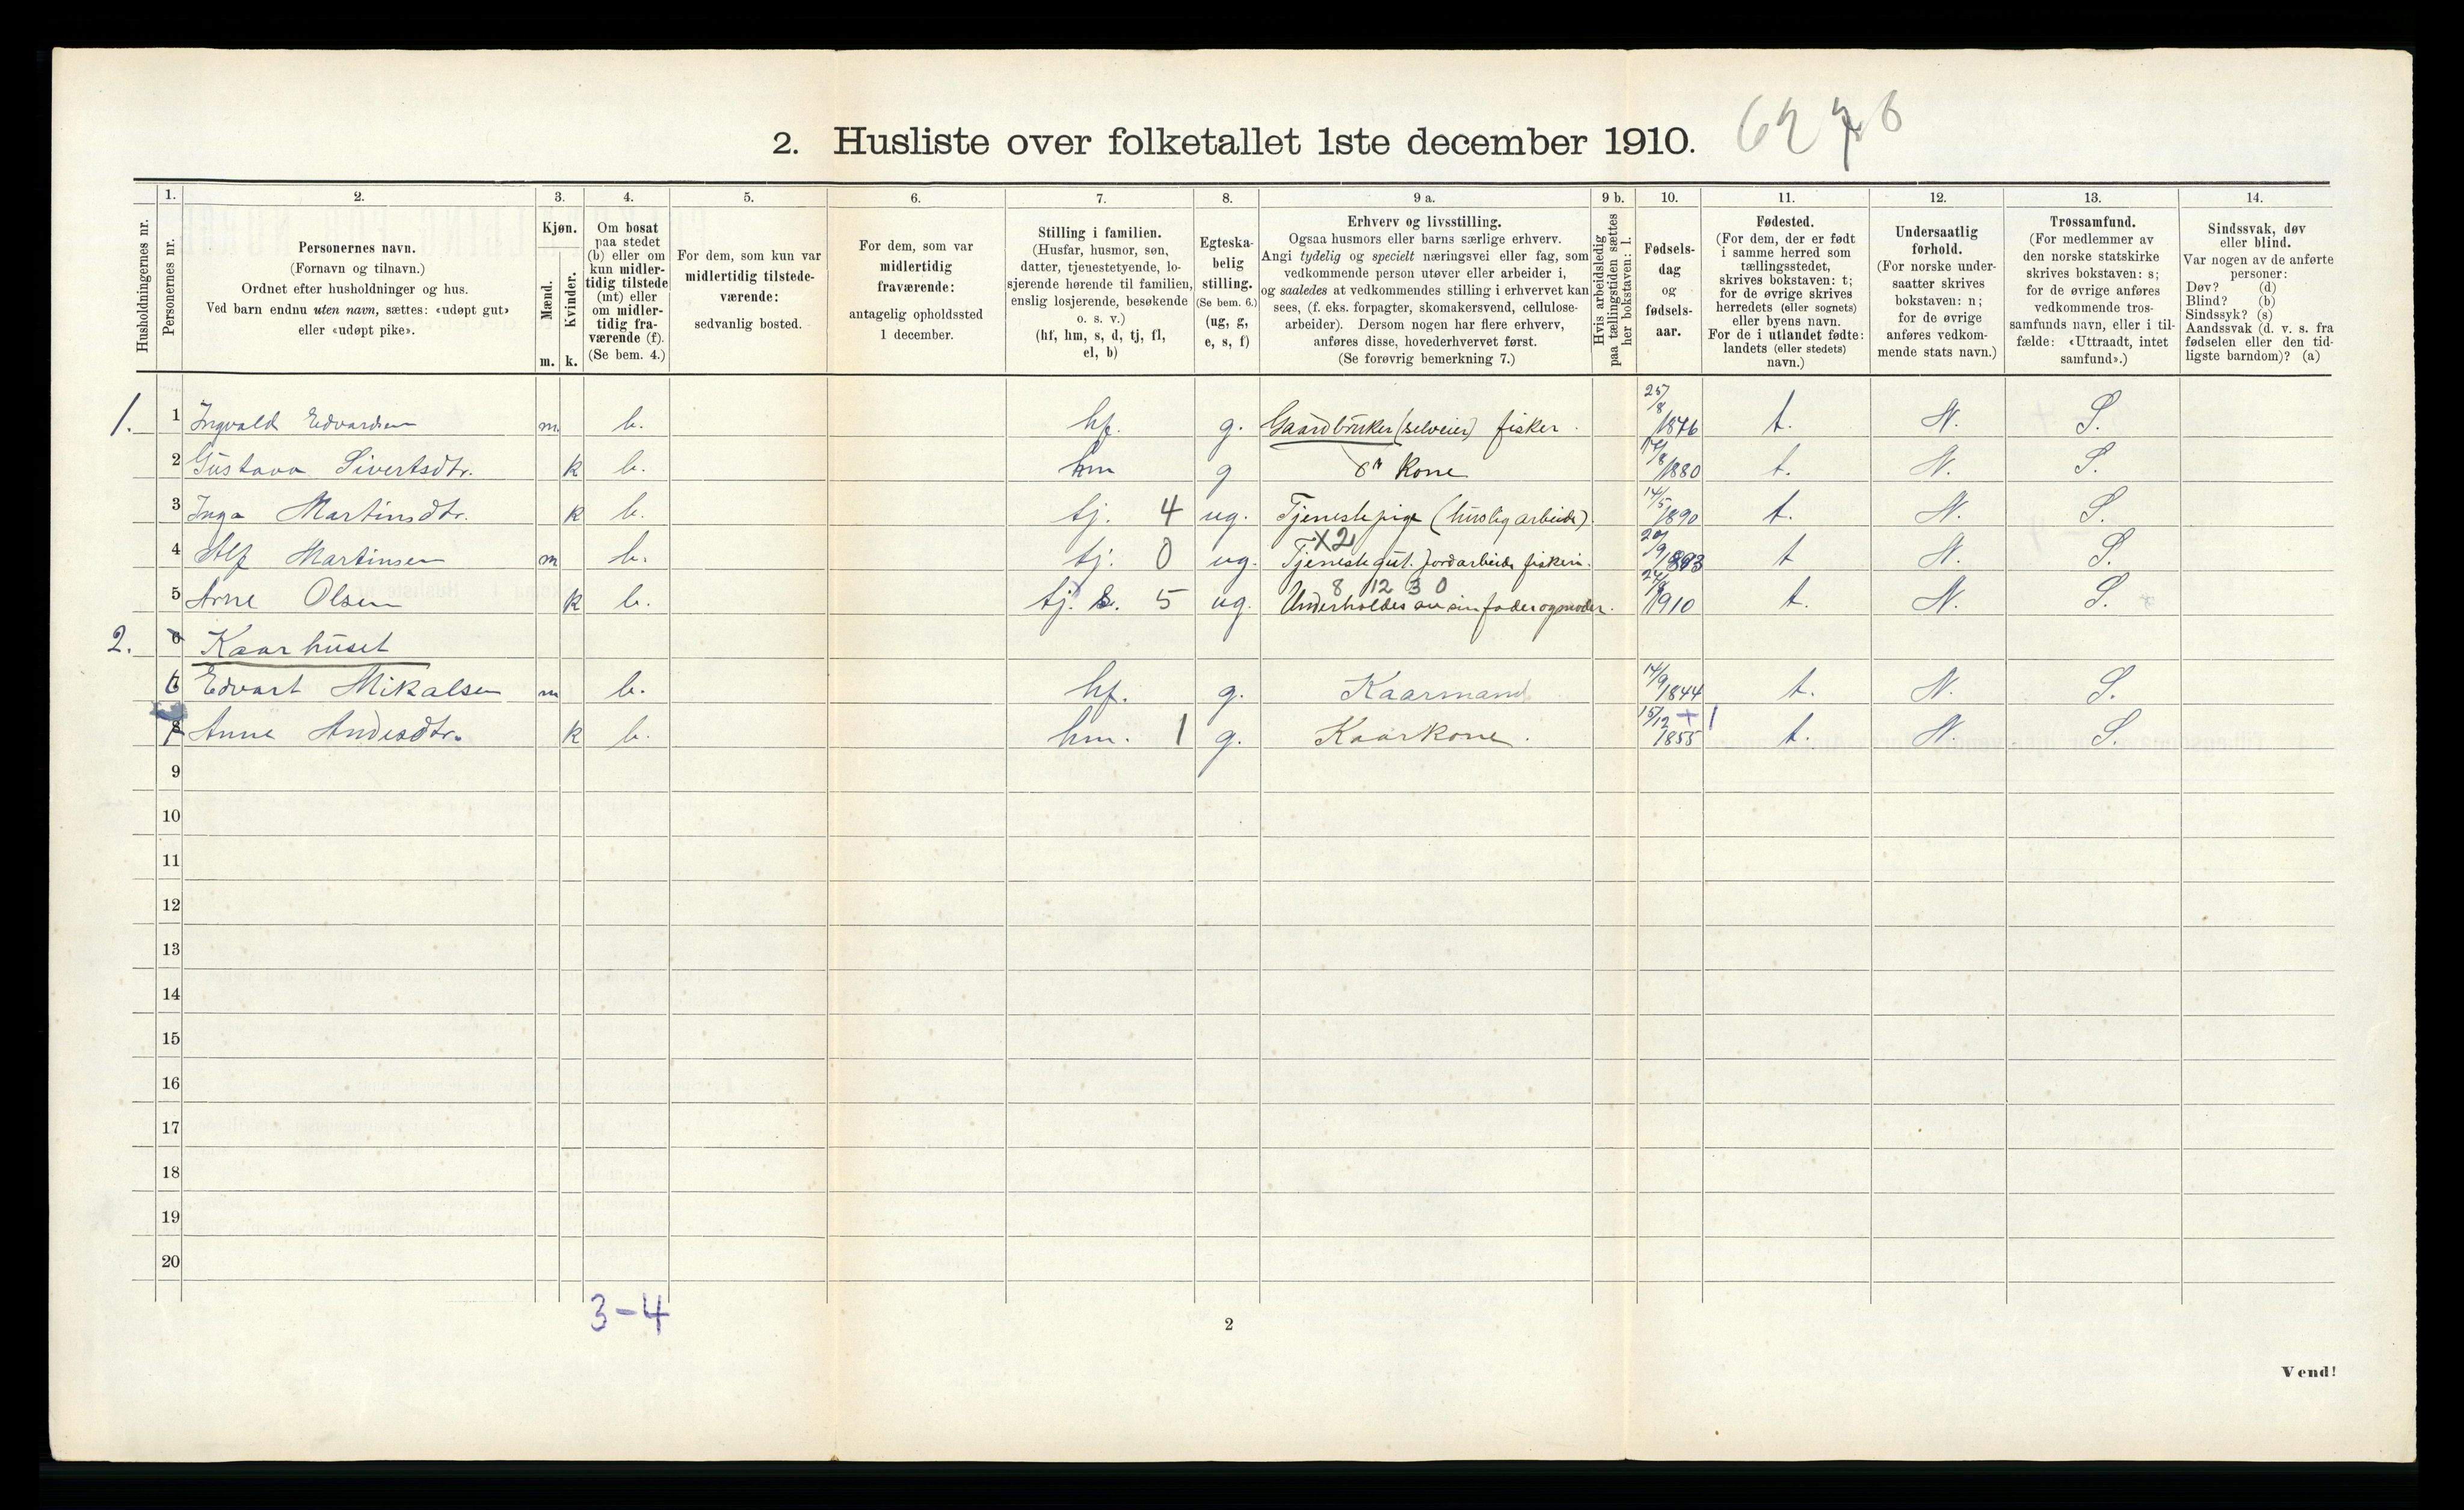 2. Husliste over folketallet 1ste december 1910.
Husholdningernes nr.
1.
Personernes nr.
2.
Personernes navn.
(Fornavn og tilnavn.)
Ordnet efter husholdninger og hus.
Ved barn endnu uten navn, sættes: «udøpt gut»
eller «udøpt pike».
3.
Kjøn.
Mænd.
Kvinder.
m. k.
4.
Om bosat
paa stedet
(b) eller om
kun midler-
tidig tilstede
(mt) eller
om midler-
tidig fra-
værende (f).
(Se bem. 4.)
5.
For dem, som kun var
midlertidig tilstede-
værende:
sedvanlig bosted.
6.
For dem, som var
midlertidig
fraværende:
antagelig opholdssted
1 december.
7.
Stilling i familien.
(Husfar, husmor, søn,
datter, tjenestetyende, lo-
sjerende hørende til familien,
enslig losjerende, besøkende
o. s. v.)
(hf, hm, s, d, tj, fl,
el, b)
8.
Egteska-
belig
stilling.
(Se bem. 6.)
(ug, g,
e, s, f)
9 a.
Erhverv og livsstilling.
Ogsaa husmors eller barns særlige erhverv.
Angi tydelig og specielt næringsvei eller fag, som
vedkommende person utøver eller arbeider i,
og saaledes at vedkommendes stilling i erhvervet kan
sees, (f. eks. forpagter, skomakersvend, cellulose-
arbeider). Dersom nogen har flere erhverv,
anføres disse, hovederhvervet først.
(Se forøvrig bemerkning 7.)
9 b.
Hvis arbeidsledig
paa tællingstiden sættes
her bokstaven: l.
10.
Fødsels-
dag
og
fødsels-
aar.
11.
Fødested.
(For dem, der er født
i samme herred som
tællingsstedet,
skrives bokstaven: t;
for de øvrige skrives
herredets (eller sognets)
eller byens navn.
For de i utlandet fødte:
landets (eller stedets)
navn.)
12.
Undersaatlig
forhold.
(For norske under-
saatter skrives
bokstaven: n;
for de øvrige
anføres vedkom-
mende stats navn.)
13.
Trossamfund.
(For medlemmer av
den norske statskirke
skrives bokstaven: s;
for de øvrige anføres
vedkommende tros-
samfunds navn, eller i til-
fælde: «Uttraadt, intet
samfund».)
14.
Sindssvak, døv
eller blind.
Var nogen av de anførte
personer:
Døv? (d)
Blind? (b)
Sindssyk? (s)
Aandssvak (d. v. s. fra
fødselen eller den tid-
ligste barndom)? (a)
1. 1 Ingvald Edvardsen m b. hf. g. Gaardbruker (selveier) fisker. 25/8 1876 t. N. S.
2 Gustava Sivertsdtr. k b. hm g Kone 1880 t. N. S.
3 Inga Martinsdtr. k b. tj. 4 ug. Tjenestepige (huslig arbeide). 14/5 1890 t. N. S.
X2
4 Alf Martinsen m b. tj. 0 ug. Tjenestegut. Jordarbeide fiskeri. 1893 t N. S.
8 12 3 0
5 Arne Olsen k b. tj. s. 5 ug. Underholdes av sin fader og moder. 1910 t. N. S.
2. Kaarhuset
6 Edvart Mikalsen m b. hf. g. Kaarmand 14/9 1844 t. N. S.
Anne Andesdtr. k b. hm. 1 g. Kaarkone. 15/12 + 1 1855 t. N. S.
9
10
11
12
13
14
15
16
17
18
19
20
3-4
2
Vend!